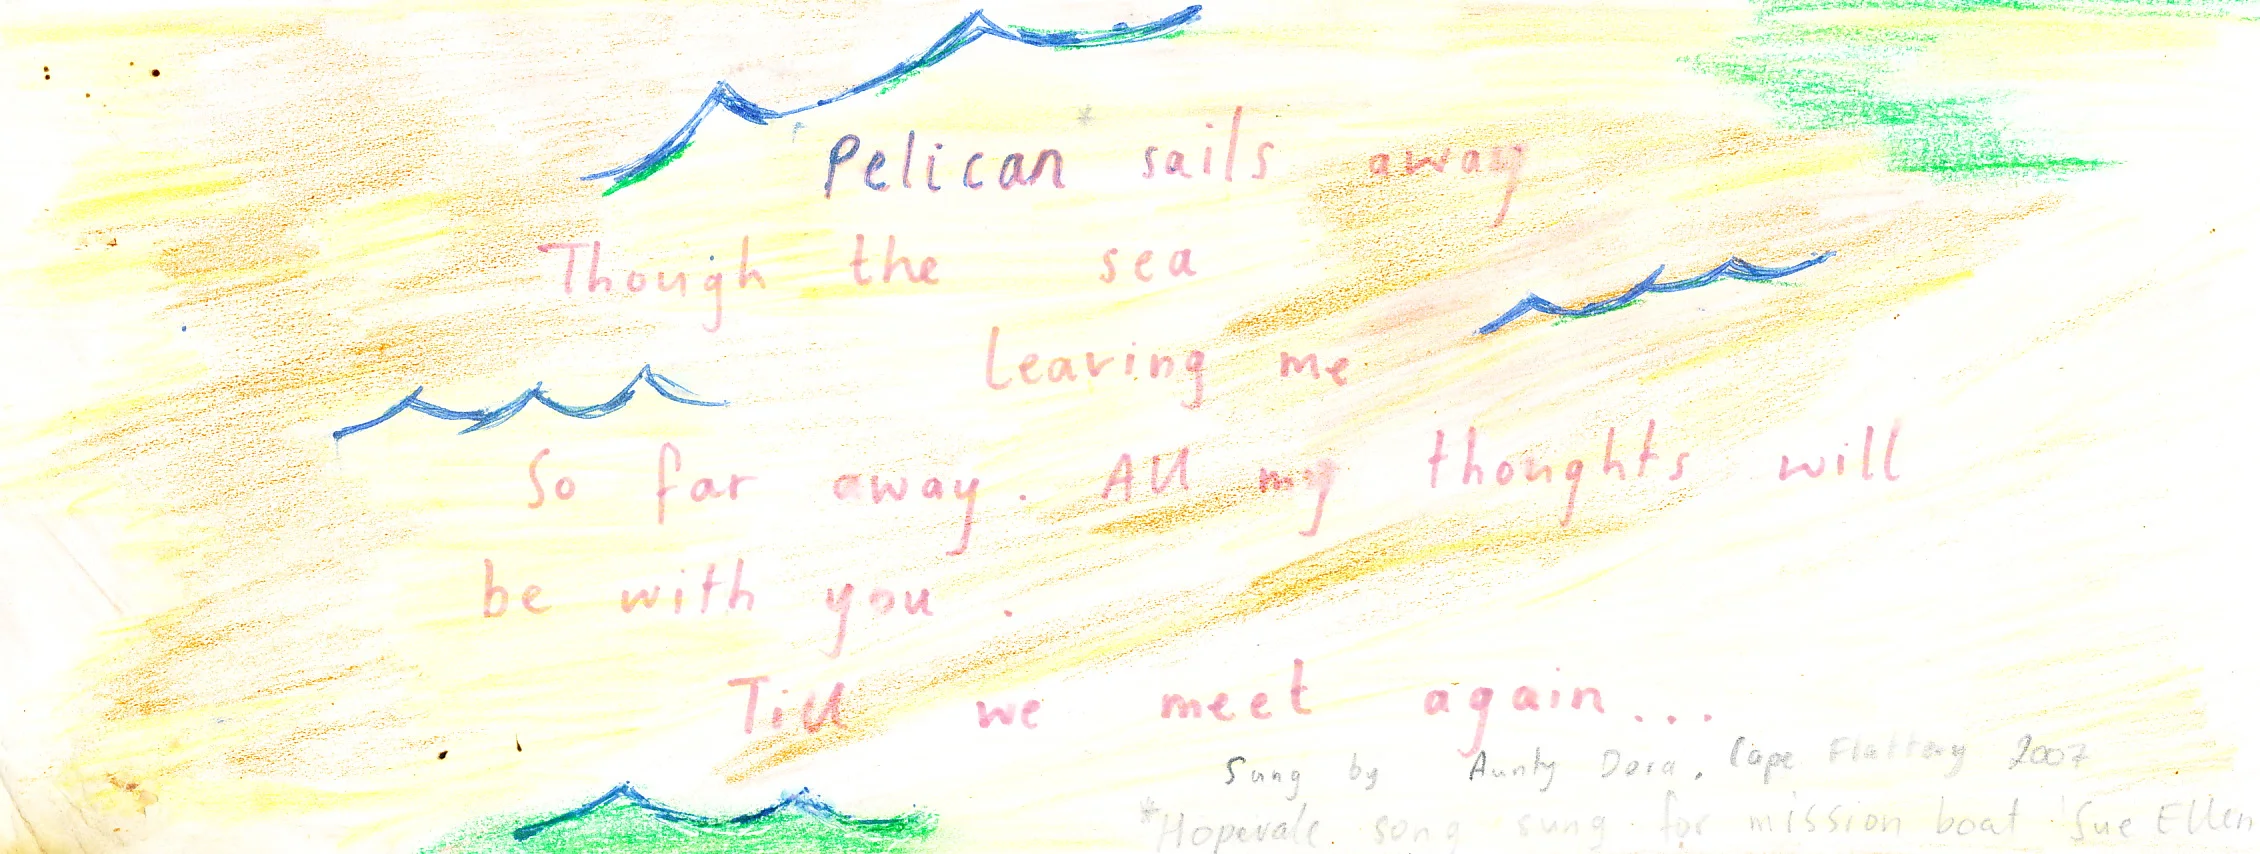 'Pelican* sails away
Though the sea
leaving me
So far away. All my thoughts will
be with you.
Till we meet again...
Sung by Aunty Dora, Cape Flattery 2007
*Hopevale song sung for mission boat 'Sue Ellen